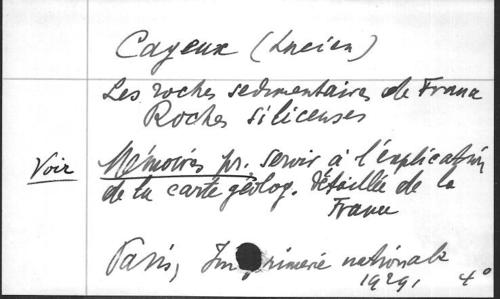 Cayeux (Lucien)
Les roches sedimentaires de France
Roches siliceuses
Voir Mémoires pr. servir à l'explication
de la carte géolog. détaillée de la
France
Paris, Imprimerie nationale
1929, 4°